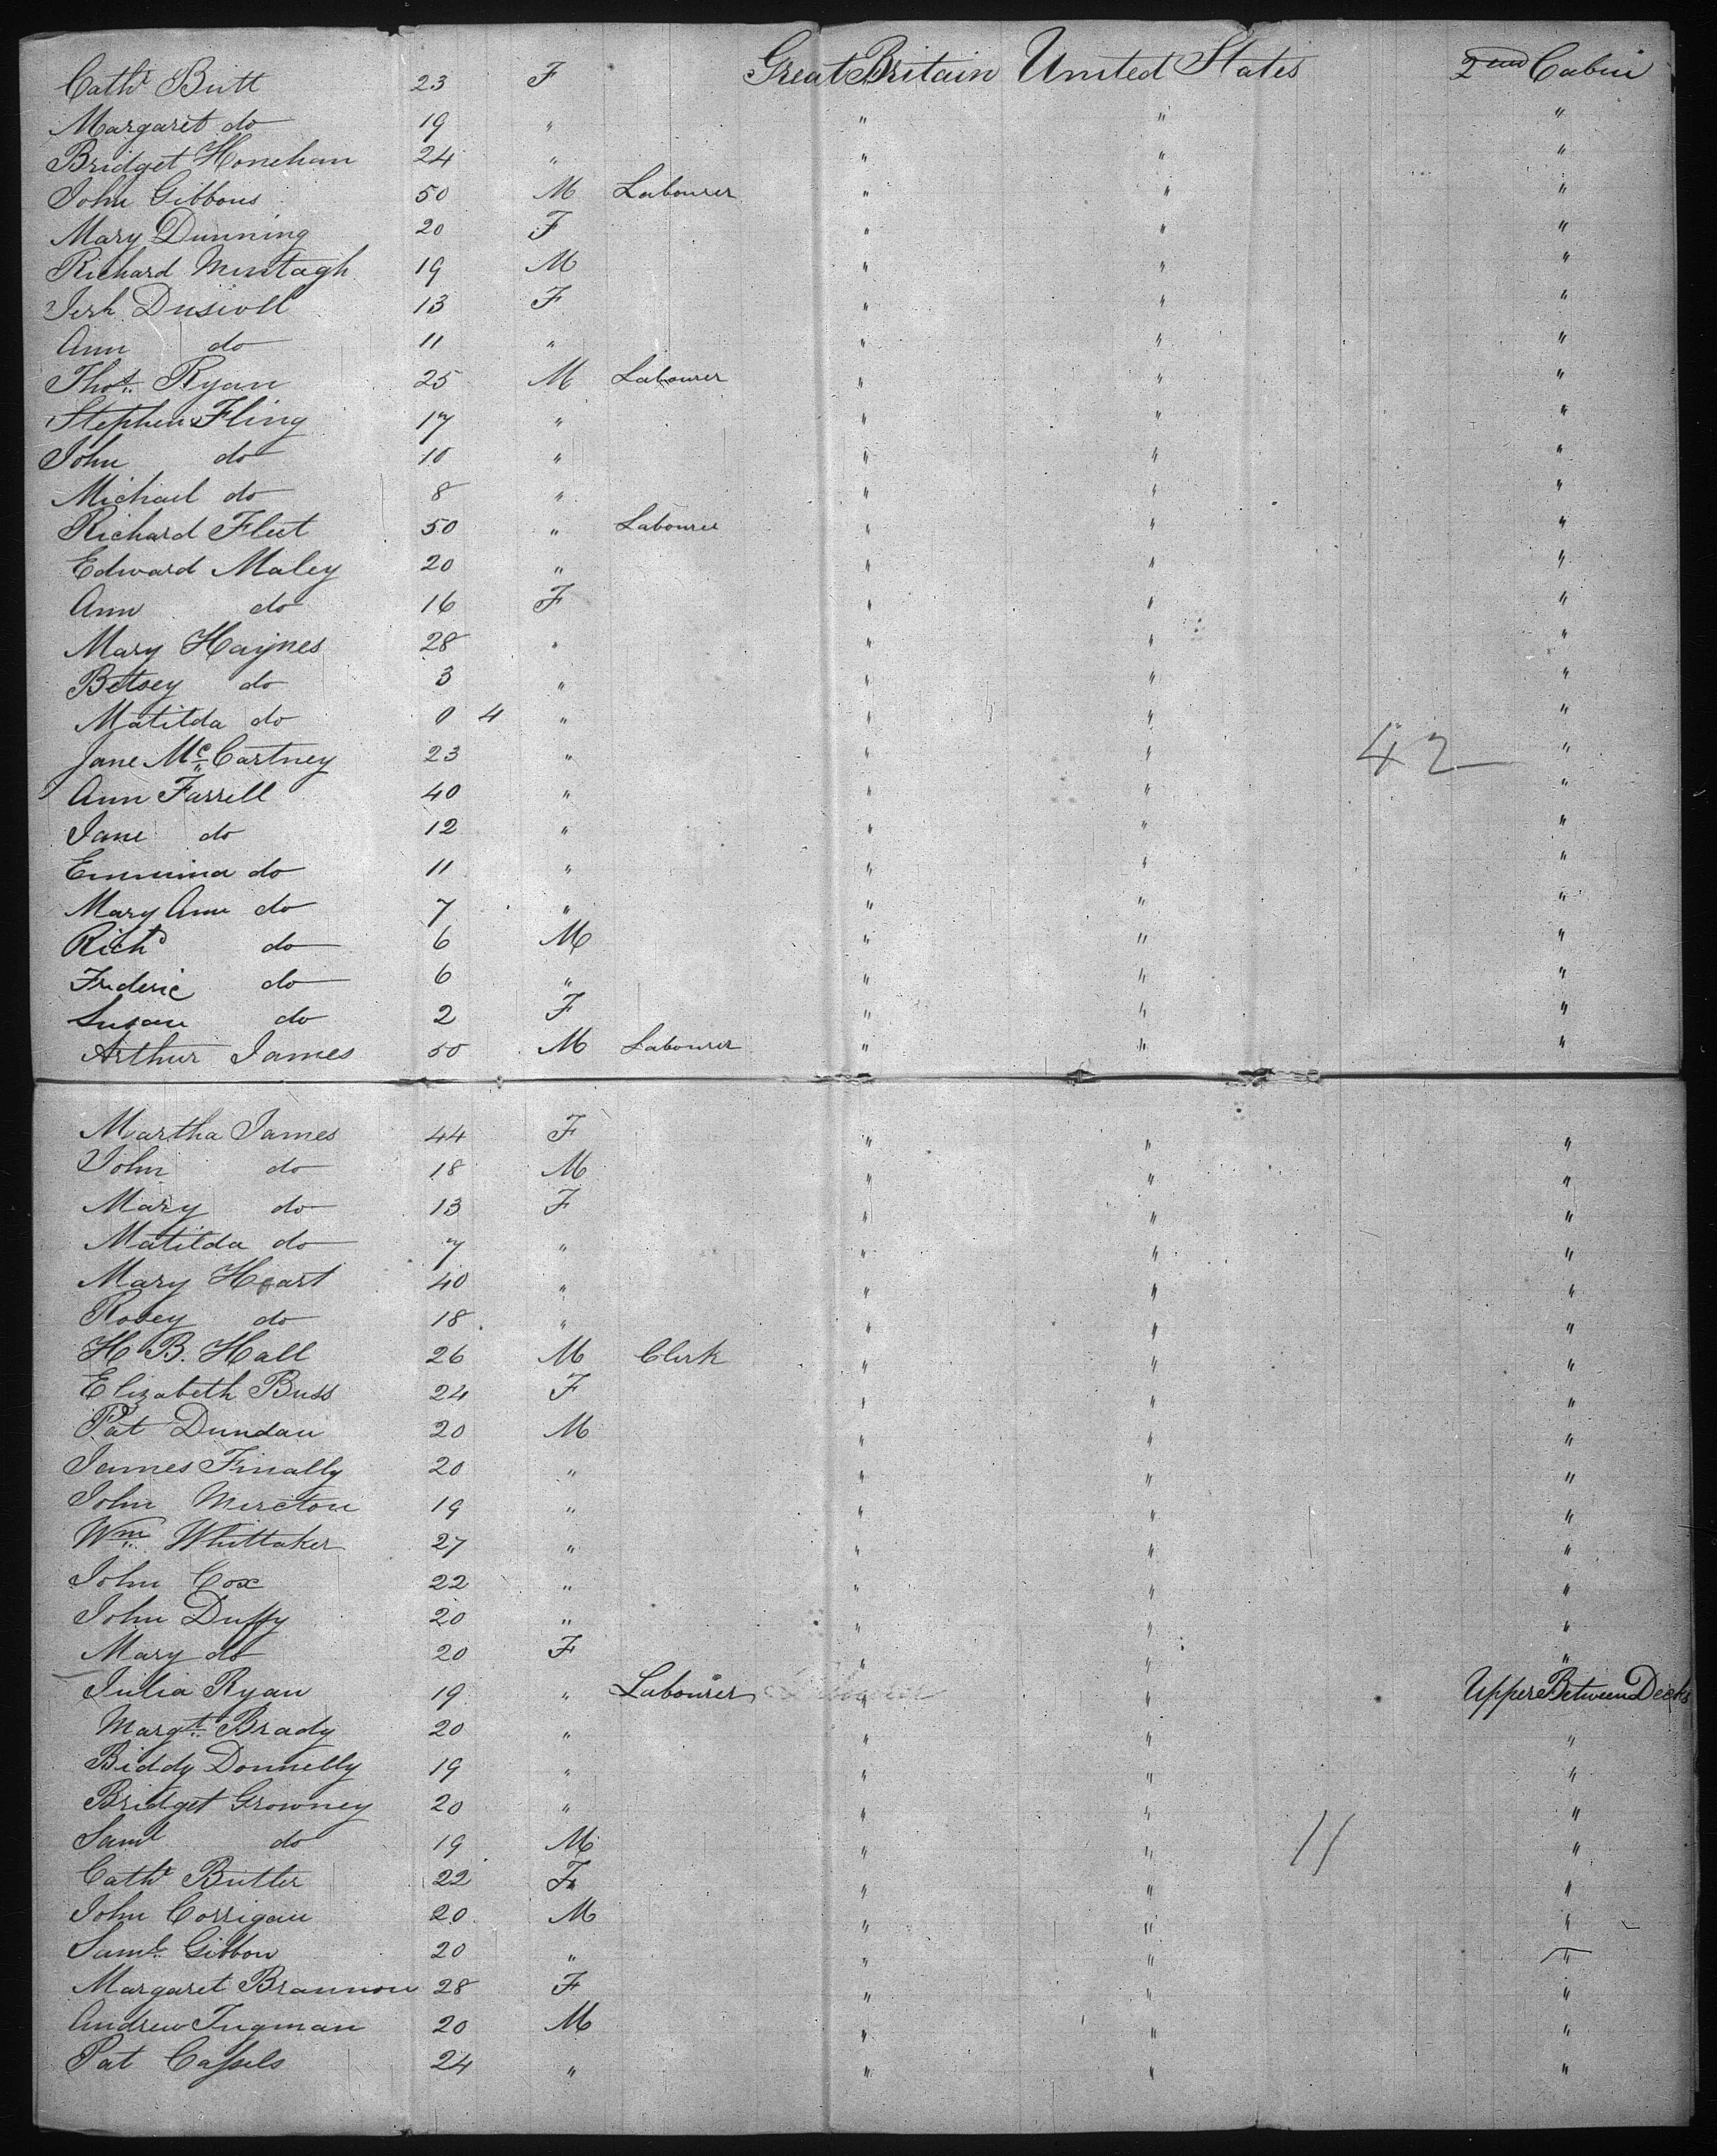 Cathe Butt 23 F Great Britain United States 2nd Cabin
Margaret do 19 " " " "
Bridget Honehan 24 " " " "
John Gibbons 50 M Labourer " " "
Mary Dunning 20 F " " "
Richard Murtagh 19 M " " "
Jerh Driscoll 13 F " " "
Ann do 11 " " " "
Thos Ryan 25 M Labourer " " "
Stephen Fling 17 " " " "
John do 10 " " " "
Michael do 8 " " " "
Richard Fleet 50 " Labourer " " "
Edward Maley 20 " " " "
Ann do 16 F " " "
Mary Haynes 28 " " " "
Betsey do 3 " " " "
Matilda do 0 4 " " " "
Jane McCartney 23 " " " 42 "
Ann Farrell 40 " " " "
Jane do 12 " " " "
Emmina do 11 " " " "
Mary Ann do 7 " " " "
Richd do 6 M " " "
Frederic do 6 " " " "
Susan do 2 F " " "
Arthur James 50 M Labourer " " "
Martha James 44 F " " "
John do 18 M " " "
Mary do 13 F " " "
Matilda do 7 " " " "
Mary Heart 40 " " " "
Rosey do 18 " " " "
H B. Hall 26 M Clerk " " "
Elizabeth Buss 24 F " " "
Pat Dundan 20 M " " "
James Finally 20 " " " "
John Mircton 19 " " " "
Wm Whittaker 27 " " " "
John Cox 22 " " " "
John Duffy 20 " " " "
Mary do 20 F " " "
Julia Ryan 19 " Labourer " " Upper Between Decks
Margt Brady 20 " " " "
Biddy Donnelly 19 " " " "
Bridget Growney 20 " " " "
Saml do 19 M " " 11 "
Cathe Butler 22 F " " "
John Corrigan 20 M " " "
Saml Gibbon 20 " " " "
Margaret Brannon 28 F " " "
Andrew Tugman 20 M " " "
Pat Cassels 24 " " " "